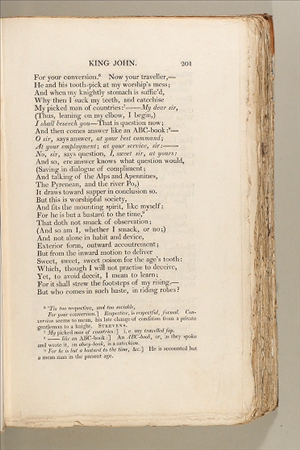 KING JOHN. 201
For your conversion.⁸ Now your traveller,—
He and his tooth-pick at my worship's mess;
And when my knightly stomach is suffic'd,
Why then I suck my teeth, and catechise
My picked man of countries:⁷——My dear sir,
(Thus, leaning on my elbow, I begin,)
I shall beseech you—That is question now;
And then comes answer like an ABC-book:⁸—
O sir, says answer, at your best command;
At your employment; at your service, sir:——
No, sir, says question, I, sweet sir, at yours:
And so, ere answer knows what question would,
(Saving in dialogue of compliment;
And talking of the Alps and Apennines,
The Pyrenean, and the river Po,)
It draws toward supper in conclusion so.
But this is worshipful society,
And fits the mounting spirit, like myself:
For he is but a bastard to the time,⁹
That doth not smack of observation;
(And so am I, whether I smack, or no;)
And not alone in habit and device,
Exterior form, outward accoutrement;
But from the inward motion to deliver
Sweet, sweet, sweet poison for the age's tooth:
Which, though I will not practise to deceive,
Yet, to avoid deceit, I mean to learn;
For it shall strew the footsteps of my rising.—
But who comes in such haste, in riding robes?
⁶ 'Tis too respective, and too sociable,
For your conversion.] Respective, is respectful, formal. Con-
version seems to mean, his late change of condition from a private
gentleman to a knight. STEEVENS.
⁷ My picked man of countries:] i. e. my travelled fop.
⁸ —— like an ABC-book:] An ABC-book, or, as they spoke
and wrote it, an absey-book, is a catechism.
⁹ For he is but a bastard to the time, &c.] He is accounted but
a mean man in the present age.